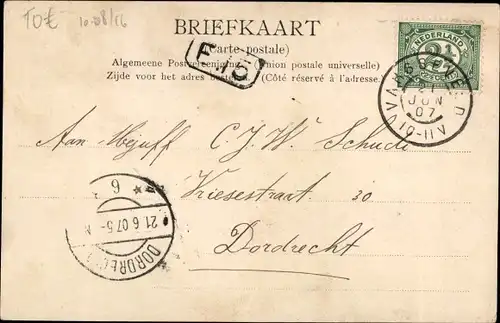 10-08/16
BRIEFKAART
(Carte postale)
Algemeene Postvereeniging (Union postale universelle)
Zijde voor het adres bestemd (Côté réservé à l'adresse.)
NEDERLAND
2½
CENT
21
JUN
07
Aan Mejuff C. J. W. Schudi
Vriesestraat 30
Dordrecht
6
21.6.07.5-
DORDRECHT